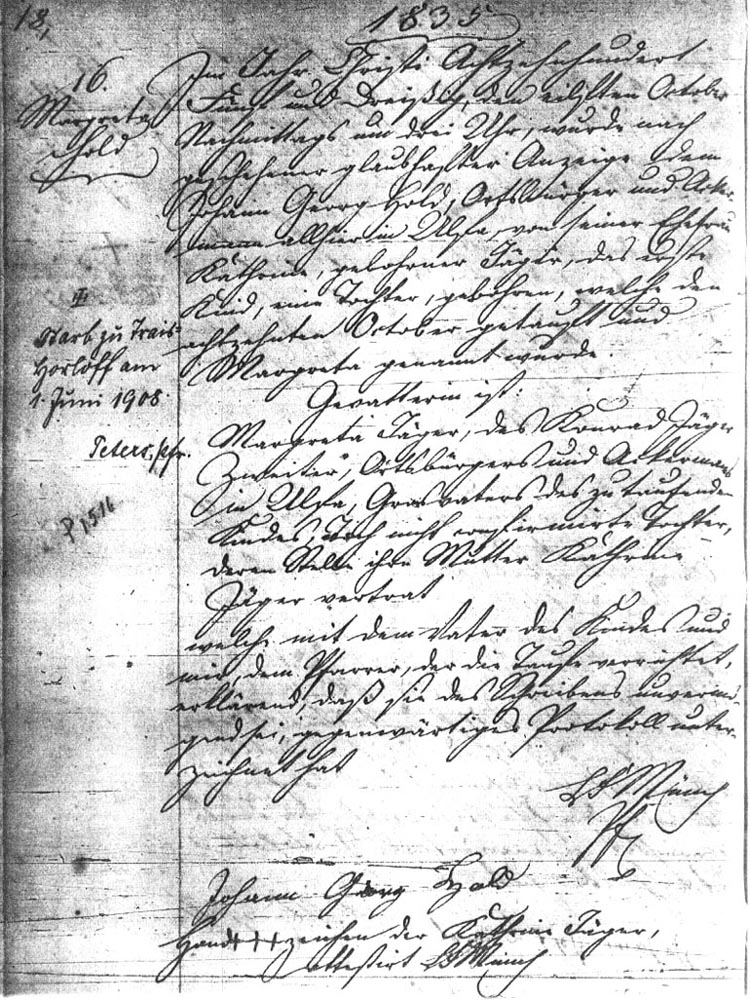 18,
1835
16.
Margreta
Hold
Im Jahr Christi Achtzehnhundert
Fünf und Dreißig, den eilften October
Nachmittags um drei Uhr, wurde nach
geschehener glaubhafter Anzeige dem
Johann Georg Hold, Ortsbürger und Acker-
mann allhier in Ulfa, von seiner Ehefrau
Käthrine, gebohrner Jäger, das erste
Kind, eine Tochter, gebohren, welche den
achtzehnten October getauft und
Margreta genannt wurde.
Gevatterin ist:
Margreta Jäger, des Konrad Jäger
Zweiter, Ortsbürgers und Ackermanns
in Ulfa, Grosvaters des zu taufenden
Kindes, noch nicht confirmirte Tochter,
deren Stelle ihre Mutter Käthrine
Jäger vertrat
welche mit dem Vater des Kindes und
mir, dem Pfarrer, der die Taufe verrichtet,
erklärend, daß sie des Schreibens unvermö-
gend sei, gegenwärtiges Protokoll unter-
zeichnet hat
Münch
Pfr
Johann Georg Hold
Hand+++zeichen der Käthrine Jäger,
attestirt Münch
Starb zu Trais-
Horloff am
1. Juni 1908
Peters, Pfr.
P 1516